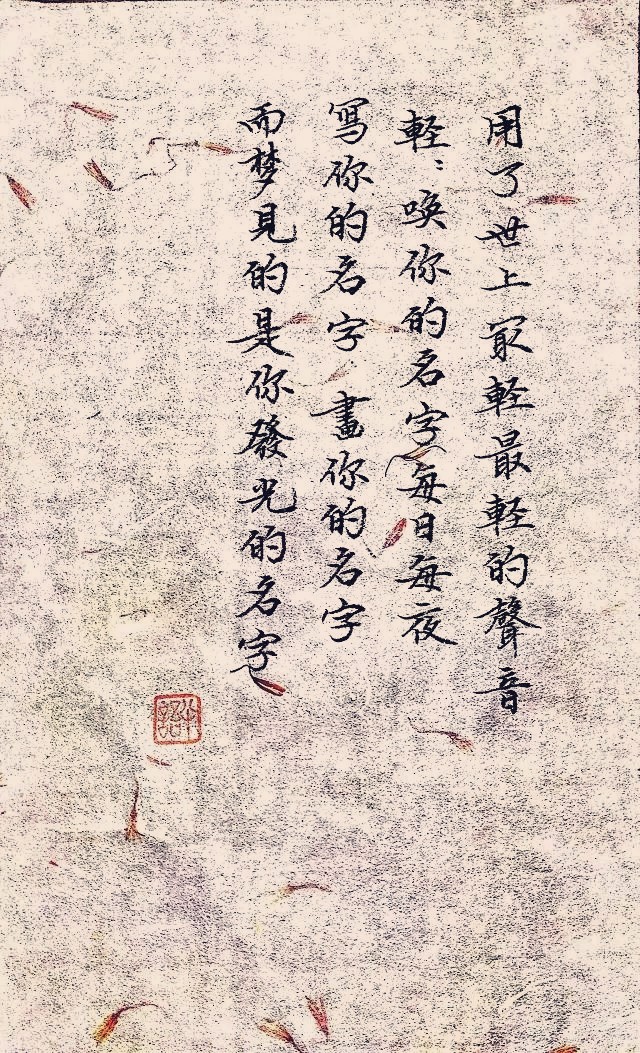 用了世上最輕最輕的聲音
輕：喚你的名字每日每夜
寫你的名字 畫你的名字
而梦見的是你發光的名字